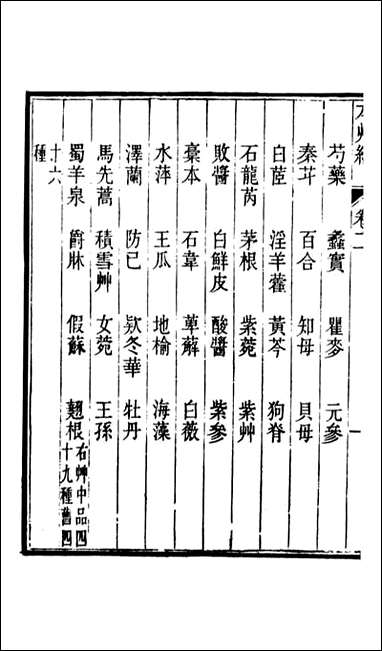 本艸經 卷二 一
芍藥 蠡實 瞿麥 元參
秦艽 百合 知母 貝母
白茝 淫羊藿 黃芩 狗脊
石龍芮 茅根 紫菀 紫艸
敗醬 白鮮皮 酸醬 紫參
藁本 石韋 萆薢 白薇
水萍 王瓜 地榆 海藻
澤蘭 防己 款冬華 牡丹
馬先蒿 積雪艸 女菀 王孫
蜀羊泉 爵牀 假蘇 翹根 右艸中品四十九種舊四
十六種